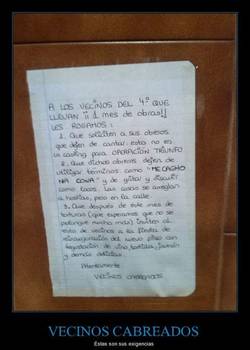 A LOS VECINOS DEL 4º QUE
LLEVAN ¡¡ 1 mes de obras!!
LES ROGAMOS:
1. Que soliciten a sus obreros
que dejen de cantar: esto no es
un casting para OPERACIÓN TRIUNFO
2. Que dichos obreros dejen de
utilizar términos como "ME CAGHO
NA CONA" y de gritar y discutir
como locos. Las cosas se arreglan
a hostias, pero en la calle.
3. Que después de este mes de
torturas (que esperamos que no se
prolongue mucho más) inviten al
resto de vecinos a la fiesta de
reinauguración del nuevo piso con
degustación de vino, tortilla, jamón
y demás delicias.
Atentamente
VECINOS CABREADOS
VECINOS CABREADOS
Éstas son sus exigencias